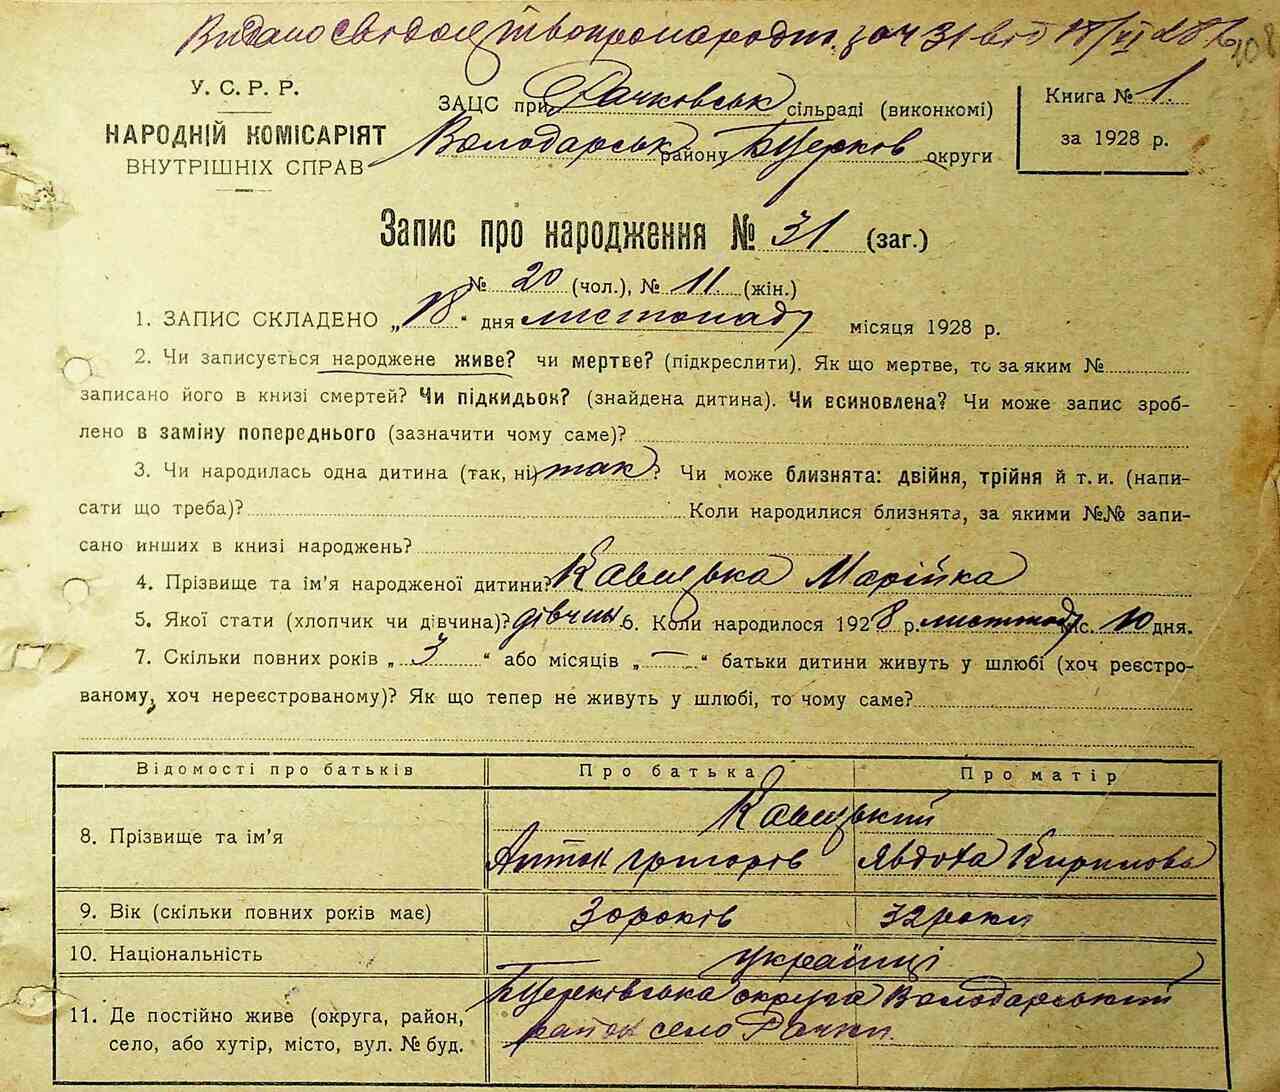 Видано Свідоцтво про народж. за ч 31 від 18/VI 28 р.
У. С. Р. Р.
НАРОДНІЙ КОМІСАРІЯТ
ВНУТРІШНІХ СПРАВ
ЗАЦС при Рачковськ сільраді (виконкомі)
Володарськ району БЦерков округи
Книга № 1.
за 1928 р.
Запис про народження № 31 (заг.)
№ 20 (чол.), № 11 (жін.)
1. ЗАПИС СКЛАДЕНО „18“ дня листопаду місяця 1928 р.
2. Чи записується народжене живе? чи мертве? (підкреслити). Як що мертве, то за яким №
записано його в книзі смертей? Чи підкидьок? (знайдена дитина). Чи всиновлена? Чи може запис зроб-
лено в заміну попереднього (зазначити чому саме)?
3. Чи народилась одна дитина (так, ні) так? Чи може близнята: двійня, трійня й т. и. (напи-
сати що треба)? Коли народилися близнята, за якими №№ запи-
сано инших в книзі народжень?
4. Прізвище та ім'я народженої дитини? Кавицька Марійка
5. Якої стати (хлопчик чи дівчина)? дівчин. 6. Коли народилося 1928 р. листопаду міс. 10 дня.
7. Скільки повних років „ 3 “ або місяців „ — “ батьки дитини живуть у шлюбі (хоч реєстро-
ваному, хоч нереєстрованому)? Як що тепер не живуть у шлюбі, то чому саме?
Відомості про батьків Про батька Про матір
8. Прізвище та ім'я Кавицький
Антон Григорів Явдоха Кирилова
9. Вік (скільки повних років має) 30 років 32 роки
10. Національність українці
11. Де постійно живе (округа, район, БЦерківська округа Володарський
село, або хутір, місто, вул. № буд. район село Рачки.